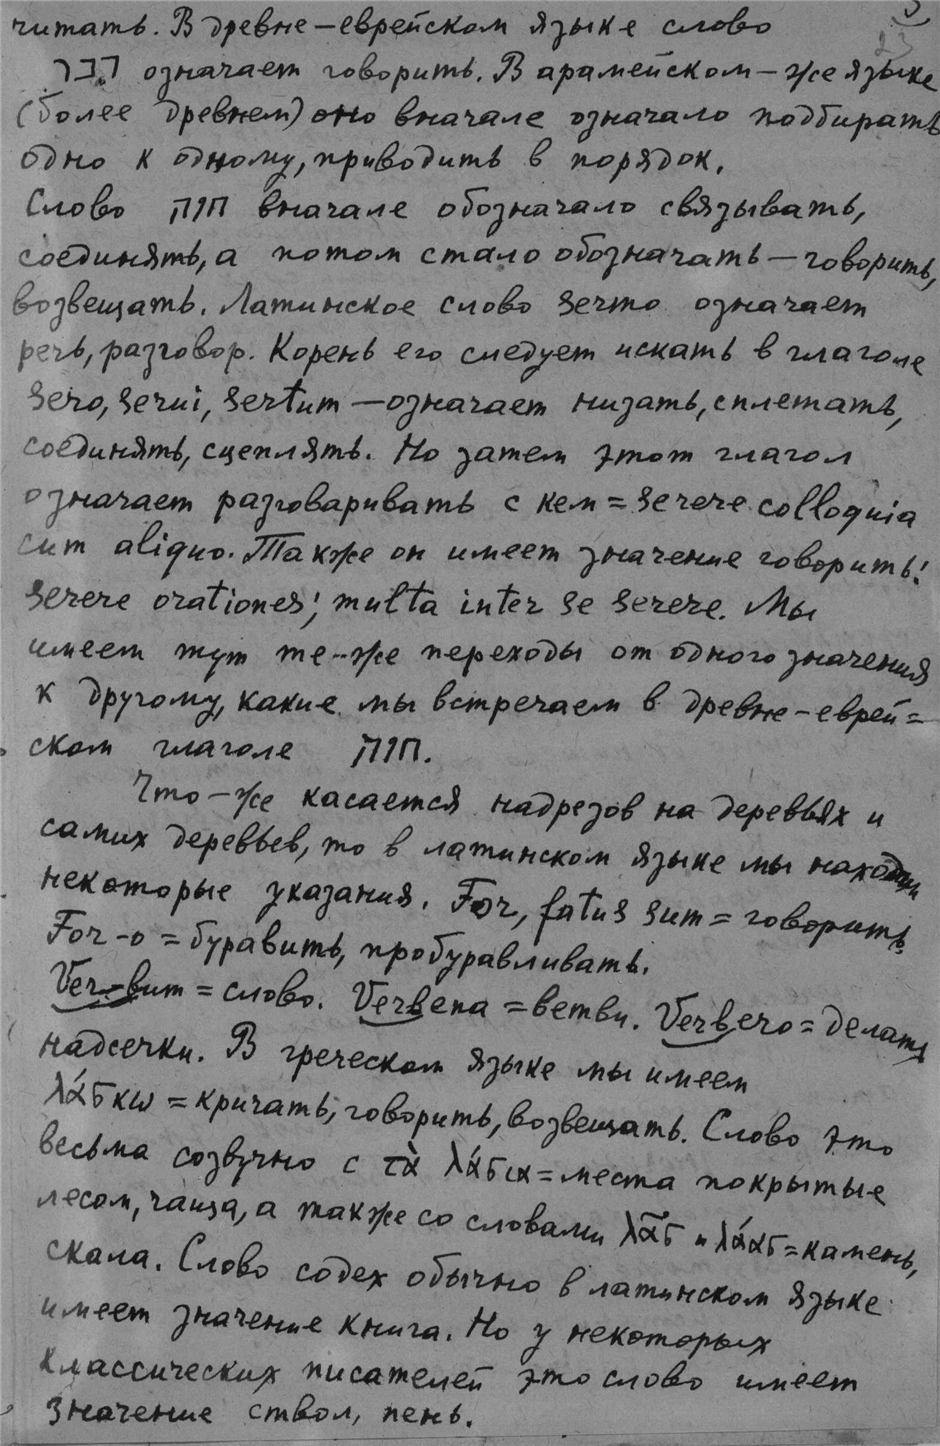 5
23
читать. В древне-еврейском языке слово
דבר означает говорить. В арамейском-же языке
(более древнем) оно вначале означало подбирать
одно к одному, приводить в порядок.
Слово חוה вначале обозначало связывать,
соединять, а потом стало обозначать - говорить,
возвещать. Латинское слово Sermo означает
речь, разговор. Корень его следует искать в глаголе
Sero, Serui, Sertum - означает низать, сплетать,
соединять, сцеплять. Но затем этот глагол
означает разговаривать с кем = Serere colloquia
cum aliquo. Также он имеет значение говорить:
Serere orationes; multa inter se serere. Мы
имеем тут те-же переходы от одного значения
к другому, какие мы встречаем в древне-еврей=
ском глаголе חוה.
Что-же касается надрезов на деревьях и
самих деревьев, то в латинском языке мы находим
некоторые указания. For, fatus sum = говорить.
For-o = буравить, пробуравливать.
Ver-bum = слово. Verbena = ветви. Verbero = делать
надсечки. В греческом языке мы имеем
λάσκω = кричать, говорить, возвещать. Слово это
весьма созвучно с τὰ λάσια = места покрытые
лесом, чаща, а также со словами λᾶς и λάας = камень,
скала. Слово codex обычно в латинском языке
имеет значение книга. Но у некоторых
классических писателей это слово имеет
значение ствол, пень.